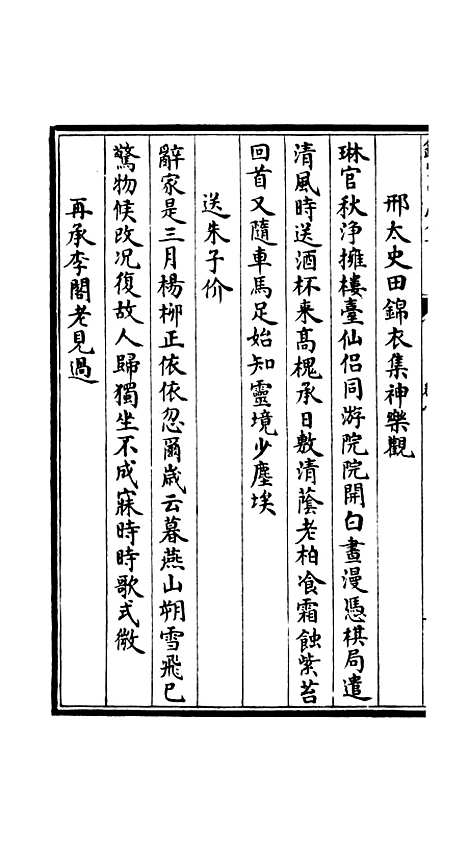 邢太史田錦衣集神樂觀
琳宫秋浄擁樓臺仙侣同游院院開白晝漫憑棋局遣
清風時送酒杯来髙槐承日敷清蔭老柏飡霜蝕紫苔
回首又隨車馬足始知靈境少塵埃
送朱子价
辭家是三月楊栁正依依忽爾嵗云暮燕山朔雪飛已
驚物候改况復故人歸獨坐不成寐時時歌式微
再承李閣老見過